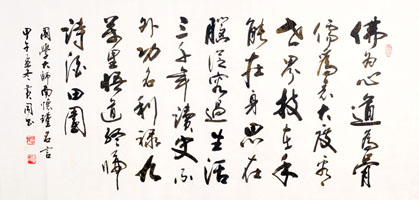 佛为心道为骨
儒為表大度看
世界技在手
能在身思在
腦從容過生活
三千年讀史不
外功名利祿九
萬里悟道終歸
詩酒田園
國學大師南懷瑾名言
甲午